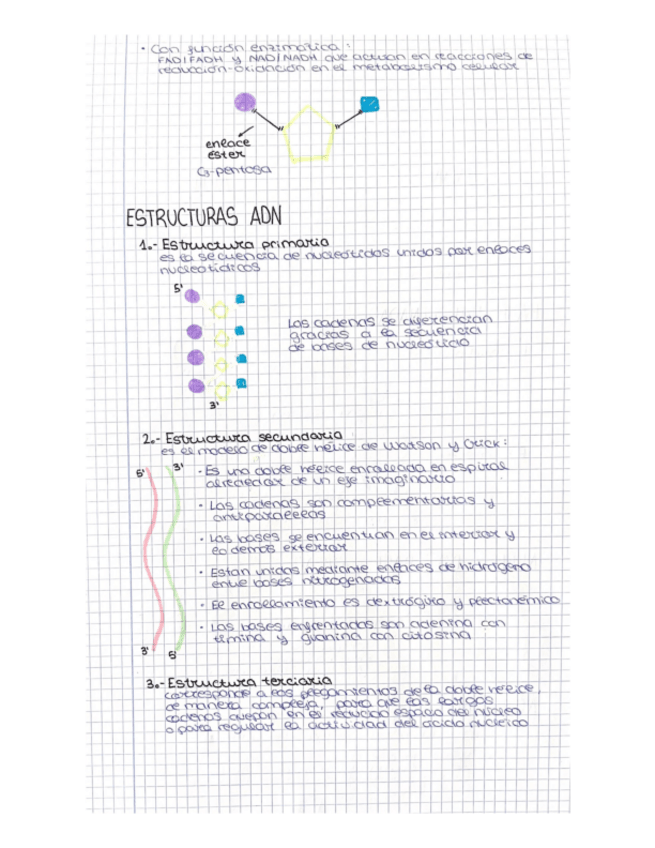 · Con función enzimática:
FAD/FADH y NAD/NADH que actúan en reacciones de
reducción-oxidación en el metabolismo celular
enlace
éster
C5-pentosa
ESTRUCTURAS ADN
1.- Estructura primaria
es la secuencia de nucleótidos unidos por enlaces
nucleotídicos
5'
Las cadenas se diferencian
gracias a la secuencia
de bases de nucleótido
3'
2.- Estructura secundaria
es el modelo de doble hélice de Watson y Crick:
5'
3'
· Es una doble hélice enrollada en espiral
alrededor de un eje imaginario
· Las cadenas son complementarias y
antiparalelas
· Las bases se encuentran en el interior y
lo demás exterior
· Están unidas mediante enlaces de hidrógeno
entre bases nitrogenadas
· El enrollamiento es dextrógiro y plectonémico
· Las bases enfrentadas son adenina con
timina y guanina con citosina
3'
5'
3.- Estructura terciaria
corresponde a los plegamientos de la doble hélice,
de manera compleja, para que las largas
cadenas quepan en el reducido espacio del núcleo
o para regular la actividad del ácido nucleico